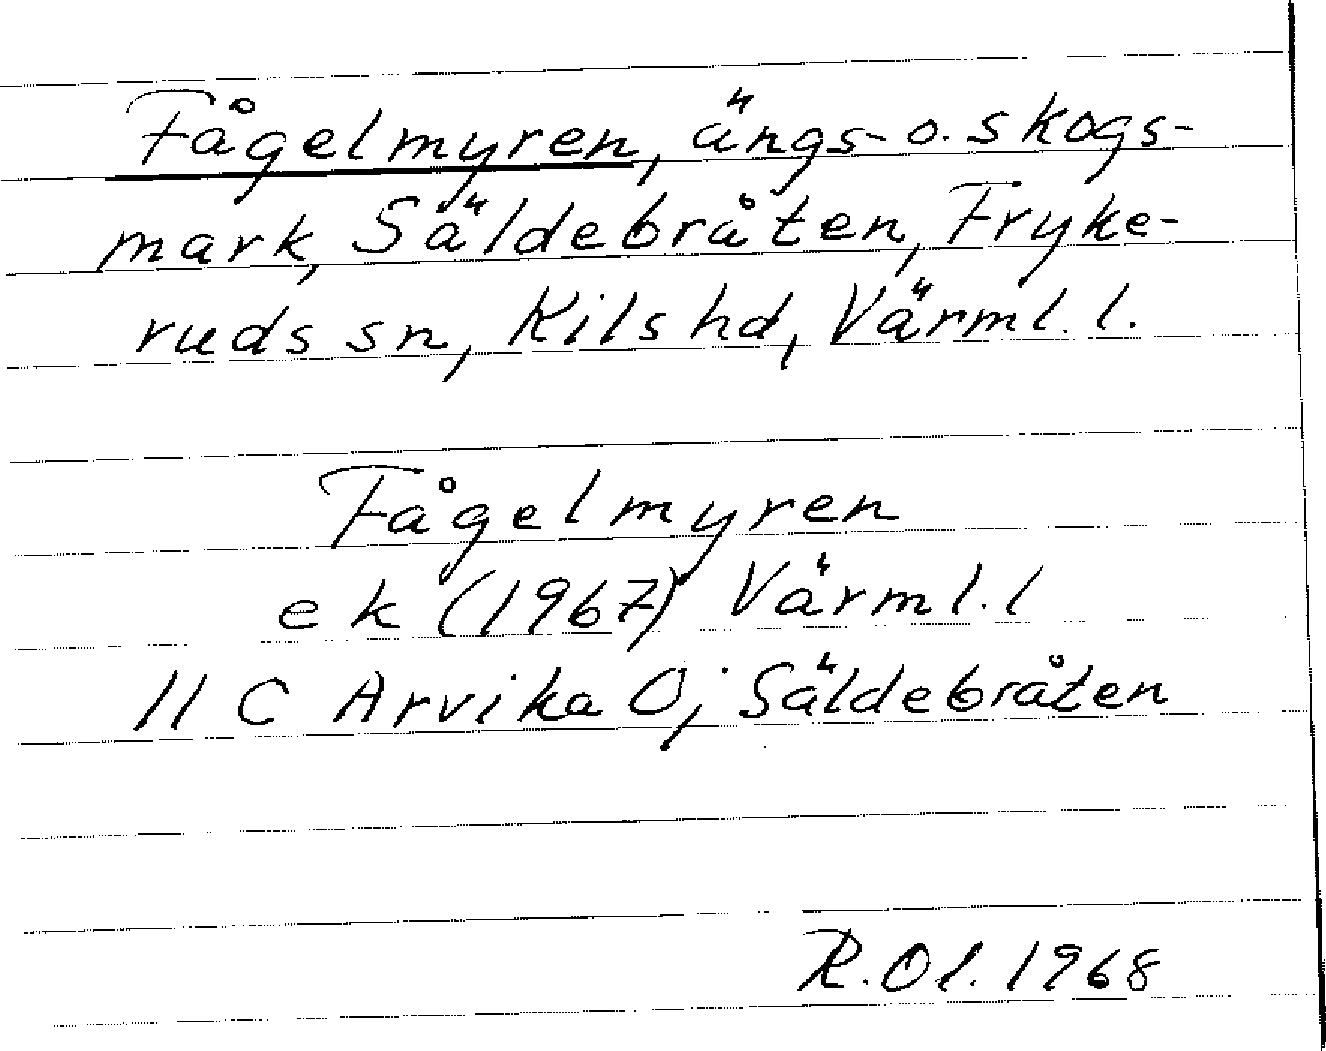 Fågelmyren, ängs- o. skogs-
mark, Säldebråten, Fryke-
ruds sn, Kils hd, Värml. l.
Fågelmyren
ek (1967) Värml. l
11 C Arvika O; Säldebråten
R. Ol. 1968